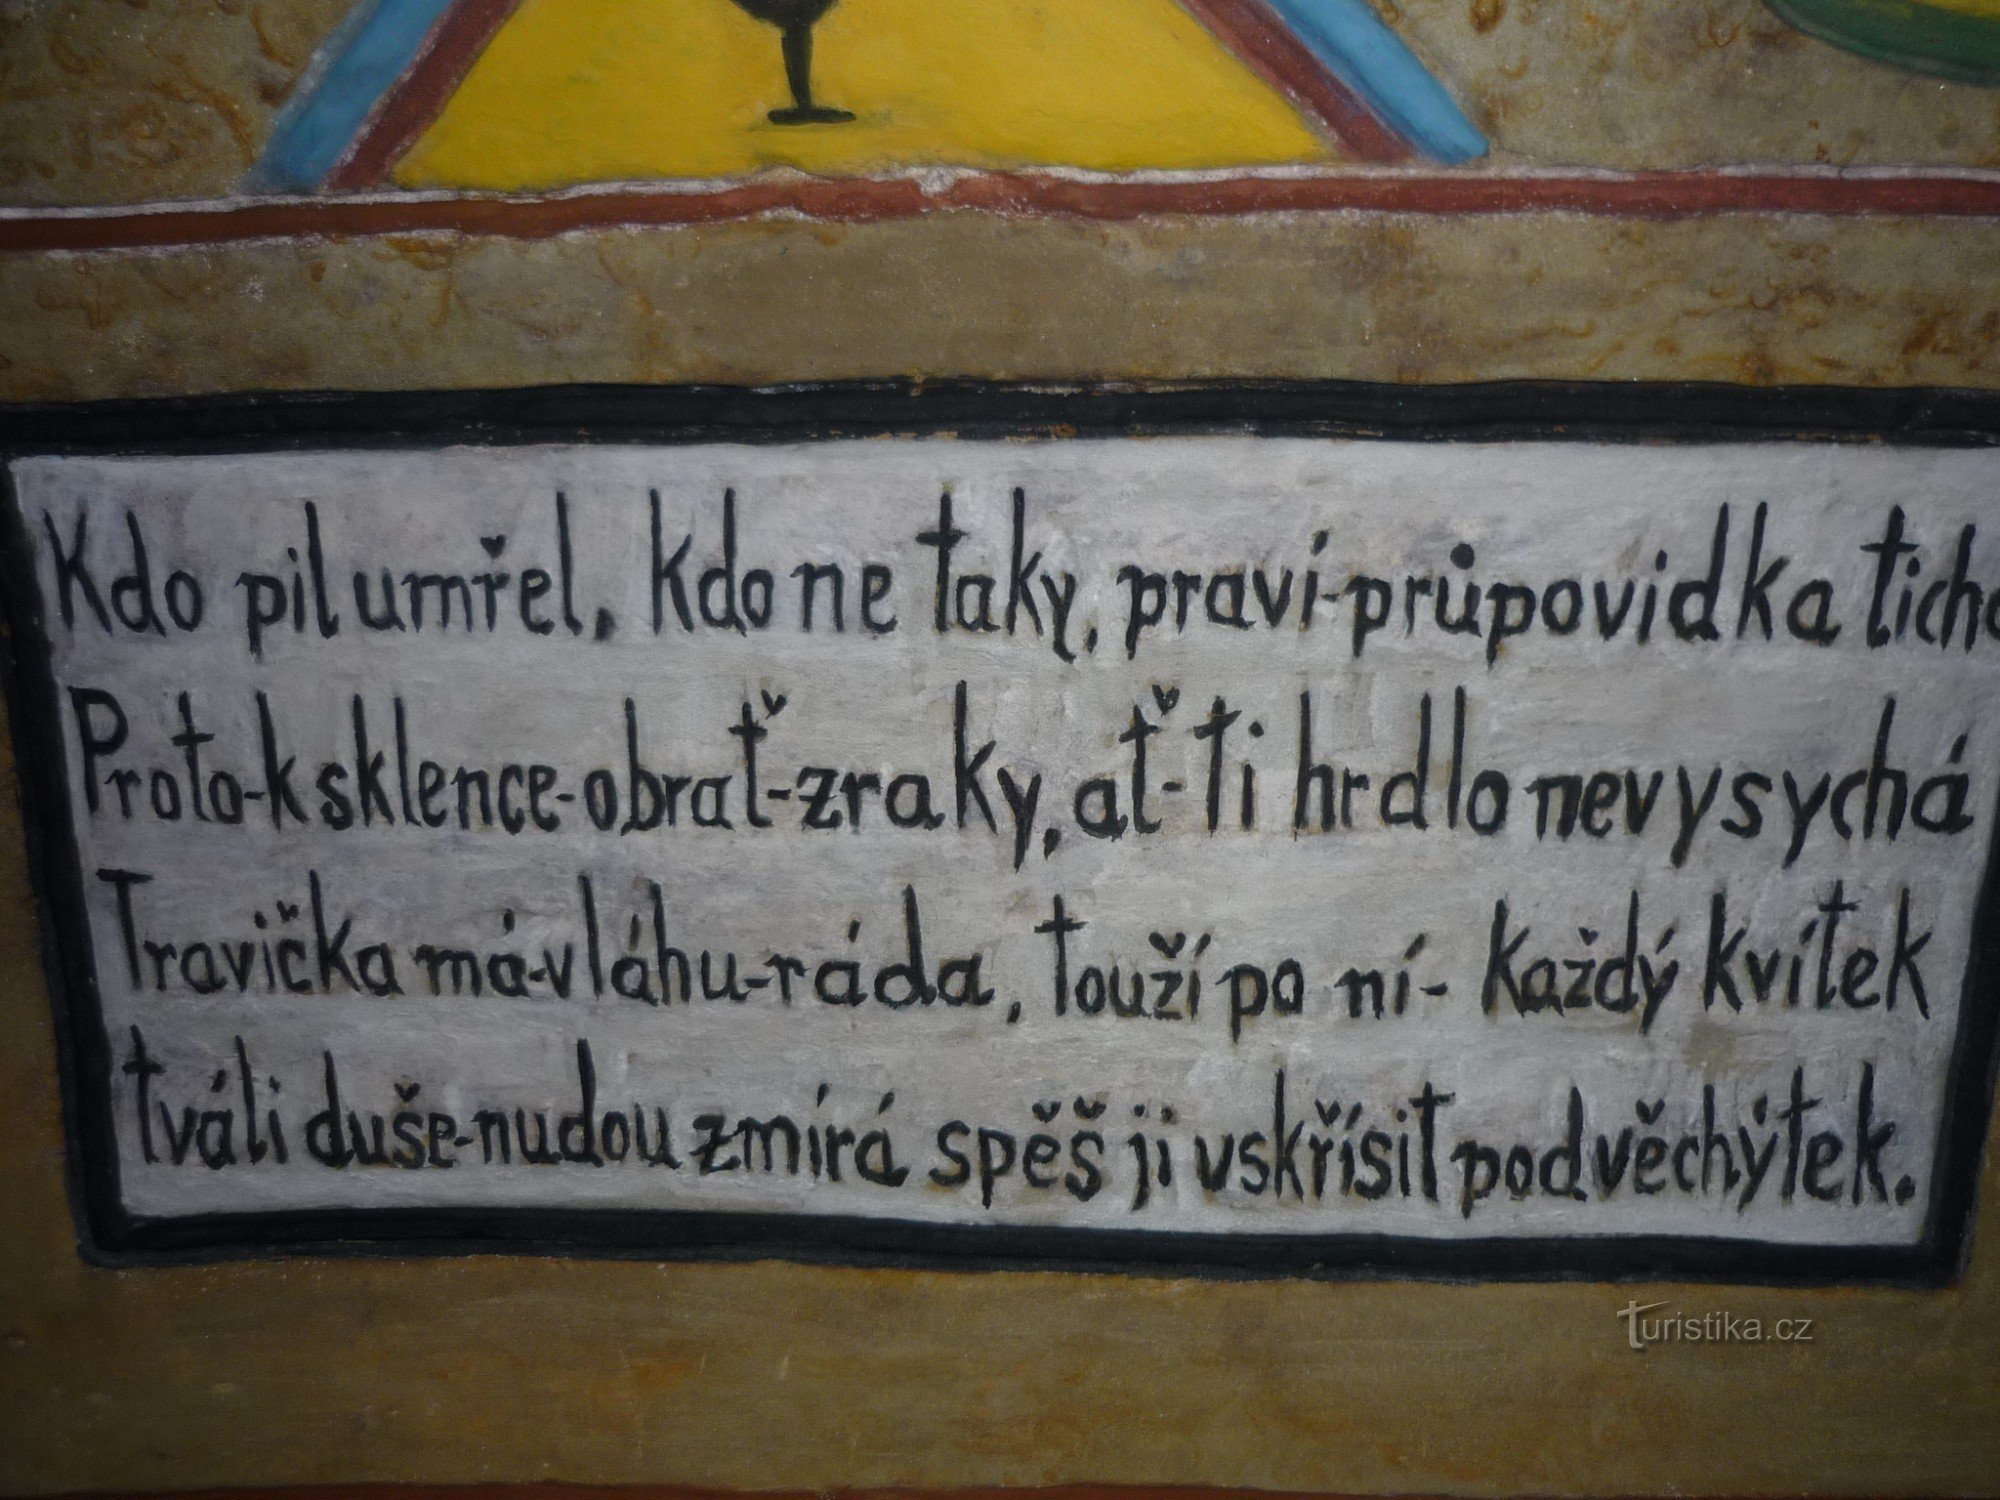 Kdo pil umřel, kdo ne taky, praví-průpovidka ticho
Proto-k sklence-obrať-zraky, ať-ti hrdlo nevysychá
Travička má-vláhu-ráda, touží po ní- každý kvítek
tváli duše-nudou zmírá spěš ji vskřísit pod věchýtek.
Turistika.cz